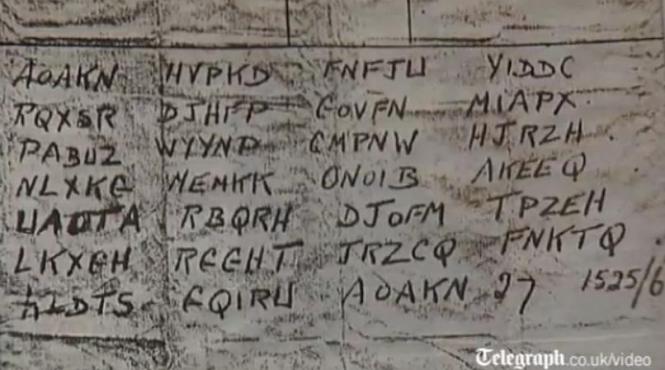 AOAKN HVPKD FNFJW YIDDC
RQXSR DJHFP GOVFN MIAPX
PABUZ WYYNP CMPNW HJRZH
NLXKG MEMKK ONOIB AKEEQ
UAOTA RBQRH DJOFM TPZEH
LKXGH RGGHT JRZCQ FNKTQ
KLDTS GQIRU AOAKN 27 1525/6
Telegraph.co.uk/video